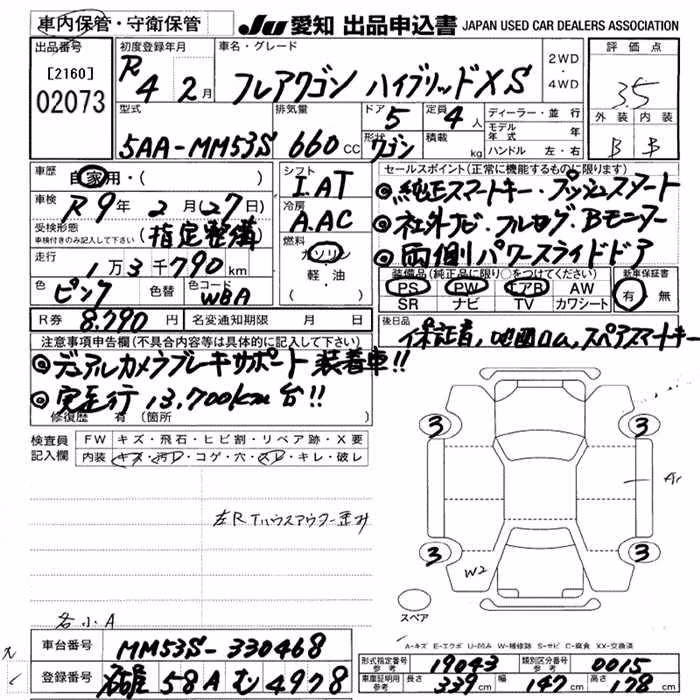 車内保管・守衛保管
JU 愛知 出品申込書 JAPAN USED CAR DEALERS ASSOCIATION
出品番号
[2160]
02073
初度登録年月
R4 2月
車名・グレード
フレアワゴン ハイブリッドXS
2WD
・
4WD
評価点
3.5
外装 内装
B B
型式
5AA-MM53S
排気量
660 cc
ドア
5
形状
ワゴン
定員
4人
積載
kg
ディーラー・並行
モデル年式 年
ハンドル 左・右
車歴
自家用・( )
車検
R9年2月(27日)
受検形態
車検付きのみ記入して下さい
(指定整備)
走行
1万3千790km
色
ピンク
色替
色コード
WBA
R券 8.790円
名変通知期限 月 日
シフト
I.AT
冷房
A.AC
燃料
ガソリン
軽・油
セールスポイント(正常に機能するものに限ります)
◎純正スマートキー・プッシュスタート
◎社外ナビ・フルセグ・Bモニター
◎両側パワースライドドア
装備品(純正品に限り○をつけてください)
PS PW エアB AW
SR ナビ TV カワシート
新車保証書
有 無
後日品
保証書,地図ロム,スペアスマートキー
注意事項申告欄(不具合内容等は具体的に記入して下さい)
◎デュアルカメラブレーキサポート装着車!!
◎実走行 13,700km台!!
修復歴 有(箇所
検査員記入欄
FW キズ・飛石・ヒビ割・リペア跡・X要
内装 キズ・汚レ・コゲ・穴・スレ・キレ・破レ
左Rタイヤハウスアウター歪み
各小A
3 3
3 3
A1
W2
スペア
A-キズ E-エクボ U-凹み W-補修跡 S-サビ C-腐食 XX-交換済
車台番号 MM53S-330468
登録番号 58A む 4978
形式指定番号 参考 19043
類別区分番号 参考 0015
車庫証明用 参考 長さ 339cm 幅 147cm 高さ 178cm